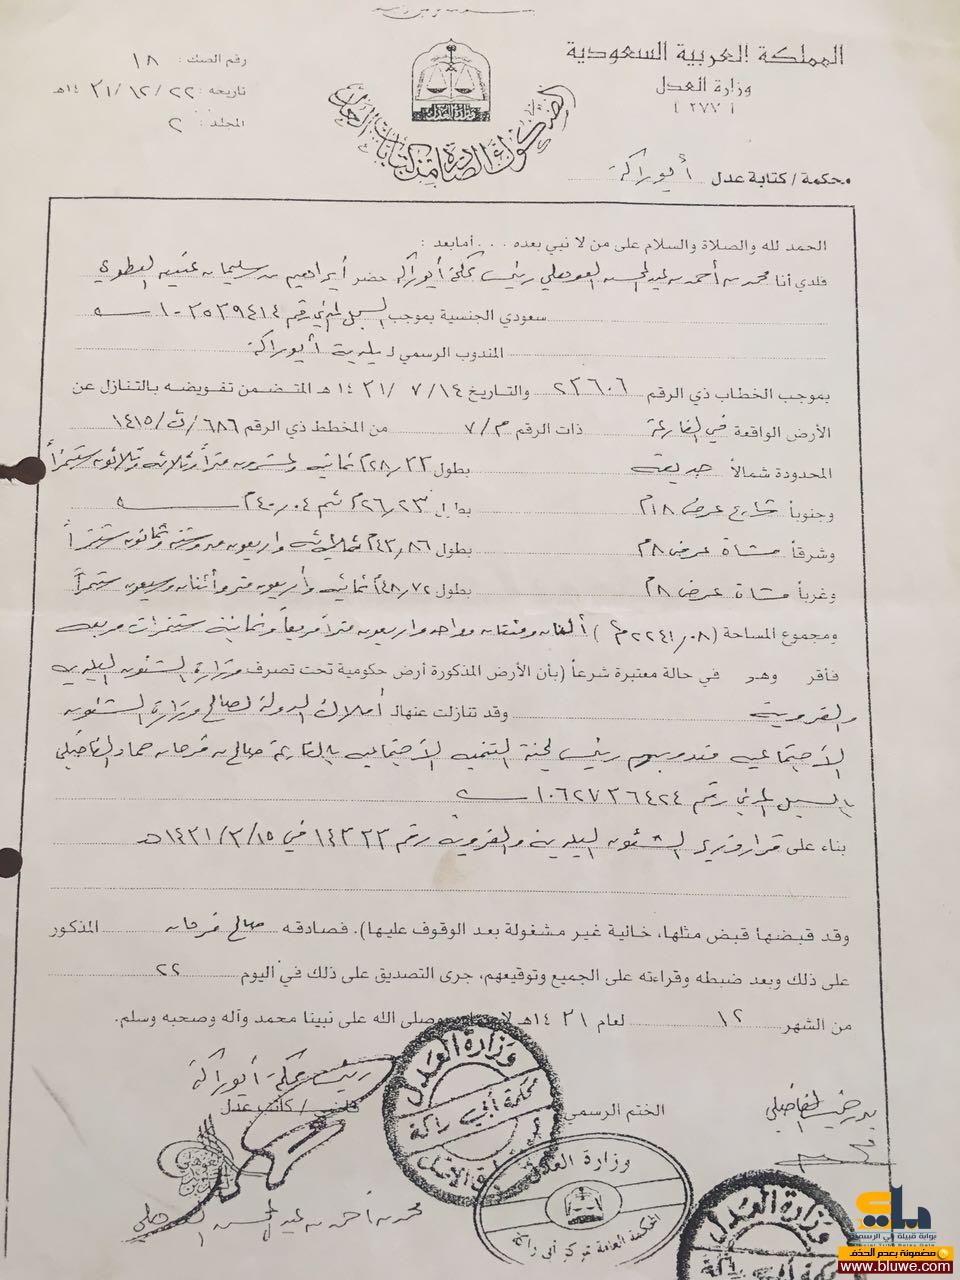 المملكة العربية السعودية
وزارة العدل
٤٢٧٧١
رقم الصك : ١٨
تاريخه : ٢٢ / ١٢ / ١٤٣١هـ
المجلد : ٢
وزارة العدل
الصكوك الصادرة من كتابات العدل
محكمة / كتابة عدل أبو راكة
الحمد لله والصلاة والسلام على من لا نبي بعده ... أما بعد :
فلدي أنا محمد بن أحمد بن عبد المحسن رئيس محكمة أبو راكة حضر إبراهيم بن سليمان العطوي
سعودي الجنسية بموجب السجل المدني رقم ١٠٣٥٣٩٤١٤
المندوب الرسمي لـ بلدية أبو راكة
بموجب الخطاب ذي الرقم ٢٣٦٠٦ والتاريخ ١٤ / ٧ / ١٤٣١ هـ المتضمن تفويضه بالتنازل عن
الأرض الواقعة في القارعة ذات الرقم م / ٧ من المخطط ذي الرقم ٦٨٦ / ت / ١٤١٥
المحدودة شمالاً حديقة بطول ٢٨,٣٣م ثمانية وعشرون متراً وثلاثة وثلاثون سنتمتراً
وجنوباً شارع عرض ١٨م بطول ٢٦,٢٣م ثم ٤٠,٠٤م
وشرقاً مشاة عرض ٨م بطول ٤٣,٨٦م ثلاثة وأربعون متر وستة وثمانون سنتمتراً
وغرباً مشاة عرض ٨م بطول ٤٨,٧٢م ثمانية وأربعون متر وأثنان وسبعون سنتمتراً
ومجموع المساحة (٢٢٤١,٠٨م٢) ألفان ومئتان وواحد وأربعون متراً مربعاً وثمانية سنتمترات مربعة
فأقر وهو في حالة معتبرة شرعاً (بأن الأرض المذكورة أرض حكومية تحت تصرف وزارة الشئون البلدية
والقروية وقد تنازلت عنها لـ أملاك الدولة لصالح وزارة الشئون
الاجتماعية مندوبهم رئيس لجنة التنمية الاجتماعية بالقارعة صالح بن فرحان حماد الفاضلي
بالسجل المدني رقم ١٠٦٢٧٣٦٤٢٤
بناء على قرار وزير الشئون البلدية والقروية رقم ١٤٣٣٣ في ١٥ / ٣ / ١٤٣١هـ
وقد قبضها قبض مثلها، خالية غير مشغولة بعد الوقوف عليها). فصادقه صالح فرحان المذكور
على ذلك وبعد ضبطه وقراءته على الجميع وتوقيعهم، جرى التصديق على ذلك في اليوم ٢٢
من الشهر ١٢ لعام ١٤٣١هـ وصلى الله على نبينا محمد وآله وصحبه وسلم.
رئيس محكمة أبو راكة
قاضي / كاتب عدل
الختم الرسمي
محمد بن أحمد بن عبد المحسن
وزارة العدل
محكمة أبي راكة
وزارة العدل
المحكمة العامة بمركز أبي راكة
وزارة العدل
محكمة أبي راكة
بلي
بوابة قبيلة بلي الرسمية
مضمونة بعدم الحذف
www.bluwe.com